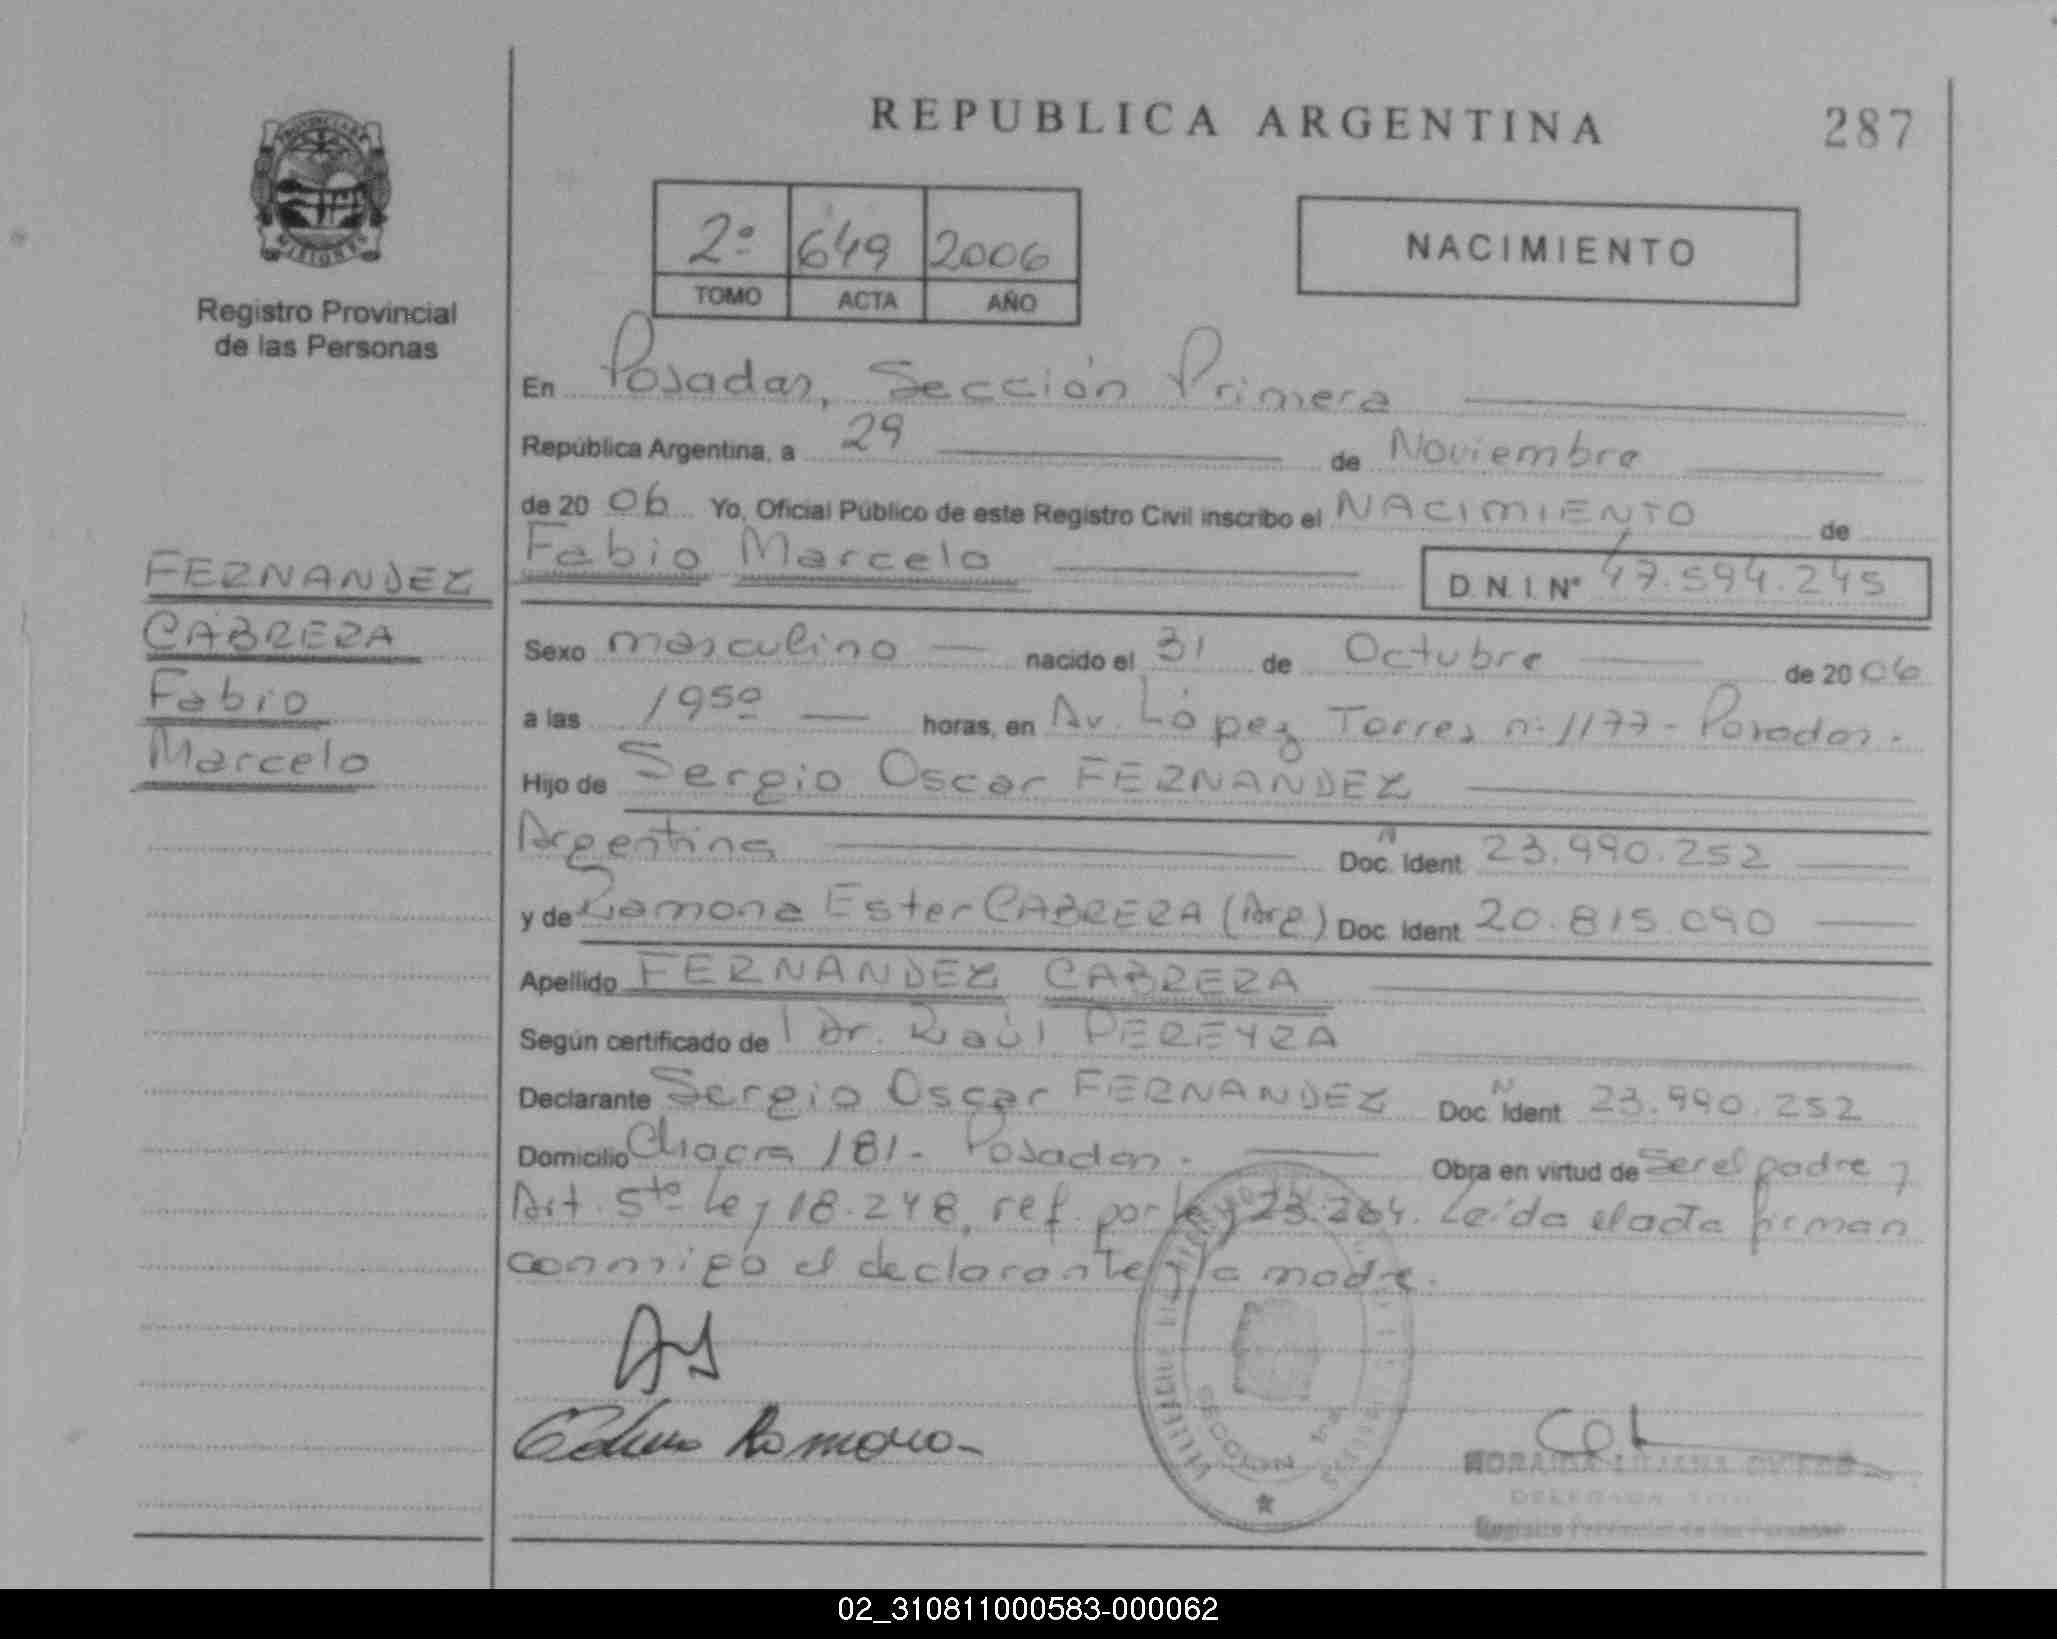 REPUBLICA ARGENTINA
287
PROVINCIA DE
MISIONES
Registro Provincial
de las Personas
2º 649 2006
TOMO ACTA AÑO
NACIMIENTO
En Posadas, Sección Primera
República Argentina, a 29 de Noviembre
de 20 06 Yo, Oficial Público de este Registro Civil inscribo el NACIMIENTO de
Fabio Marcelo
D.N.I. Nº 47.594.245
FERNANDEZ
CABRERA
Fabio
Marcelo
Sexo masculino nacido el 31 de Octubre de 20 06
a las 19⁵⁰ horas, en Av. López Torres nº 1177 - Posadas.
Hijo de Sergio Oscar FERNANDEZ
Argentina Doc. Ident. 23.990.252
y de Ramona Ester CABRERA (Arg) Doc. Ident. 20.815.090
Apellido FERNANDEZ CABRERA
Según certificado de Dr. Raúl PEREYRA
Declarante Sergio Oscar FERNANDEZ Doc. Ident. 23.990.252
Domicilio Chacra 181 - Posadas. Obra en virtud de Ser el padre y
Art. 5to Ley 18.248, ref. por Ley 23.264. Leída el acta firman
conmigo el declarante y la madre.
Romero
SECCION 1ra
DELEGADA
Registro Provincial de las Personas
02_310811000583-000062